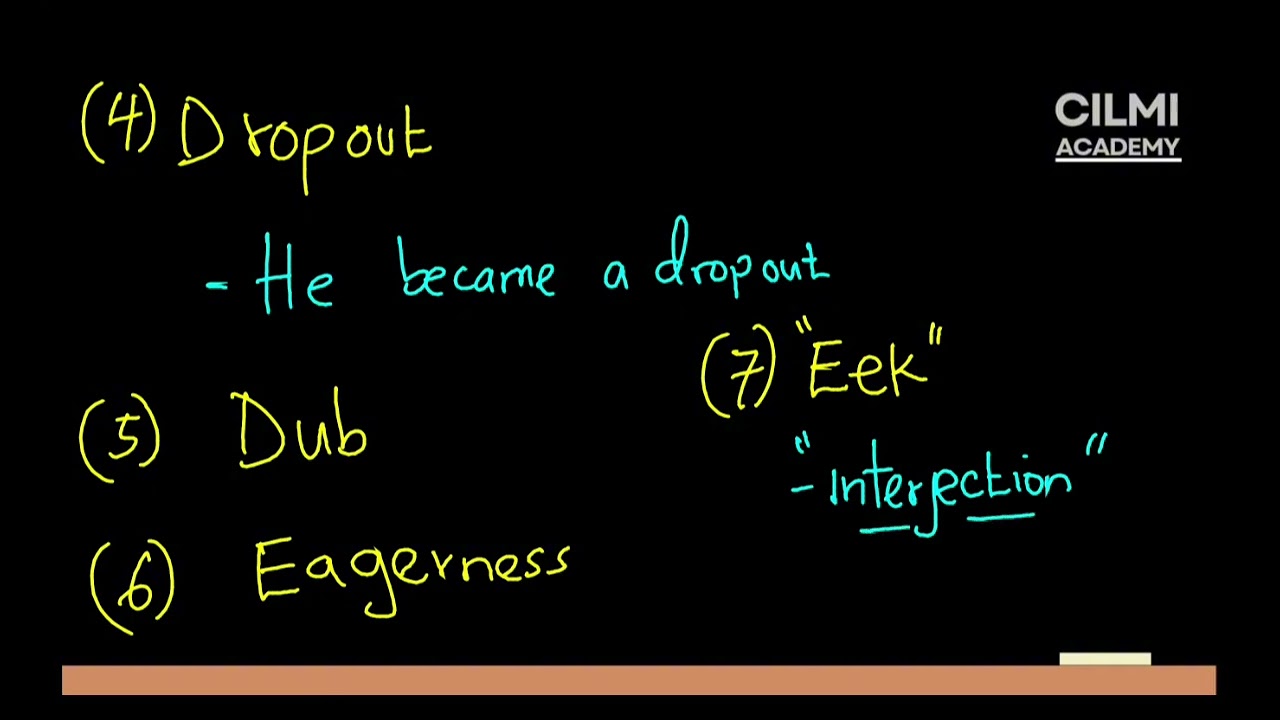 (4) Dropout
- He became a dropout
(5) Dub
(6) Eagerness
(7) "Eek"
"- Interjection"
CILMI
ACADEMY